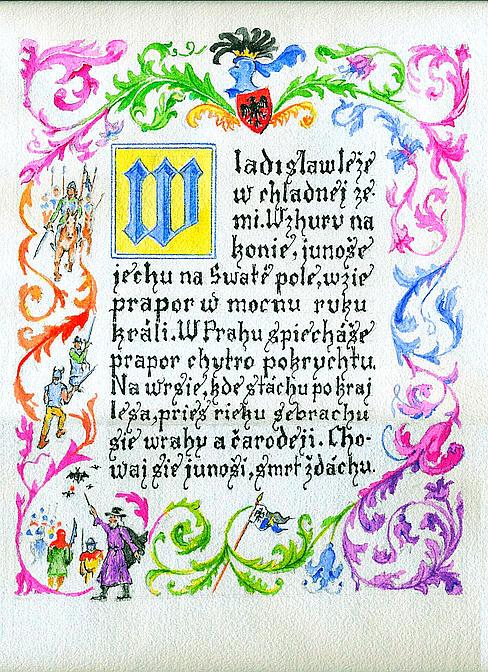 Wladislaw leže
w chladnej ze-
mi. Wzhuru na
konie, junoše
jechu na Swaté pole, wzie
prapor w mocnu ruku
králi. W Prahu spiecháše
prapor chytro pokrychtu.
Na wrsie, kde stáchu po kraj
lesa, pries rieku sebrachu
sie wrahy a čarodeji. Cho-
waj sie junoši, smrt ždáchu.